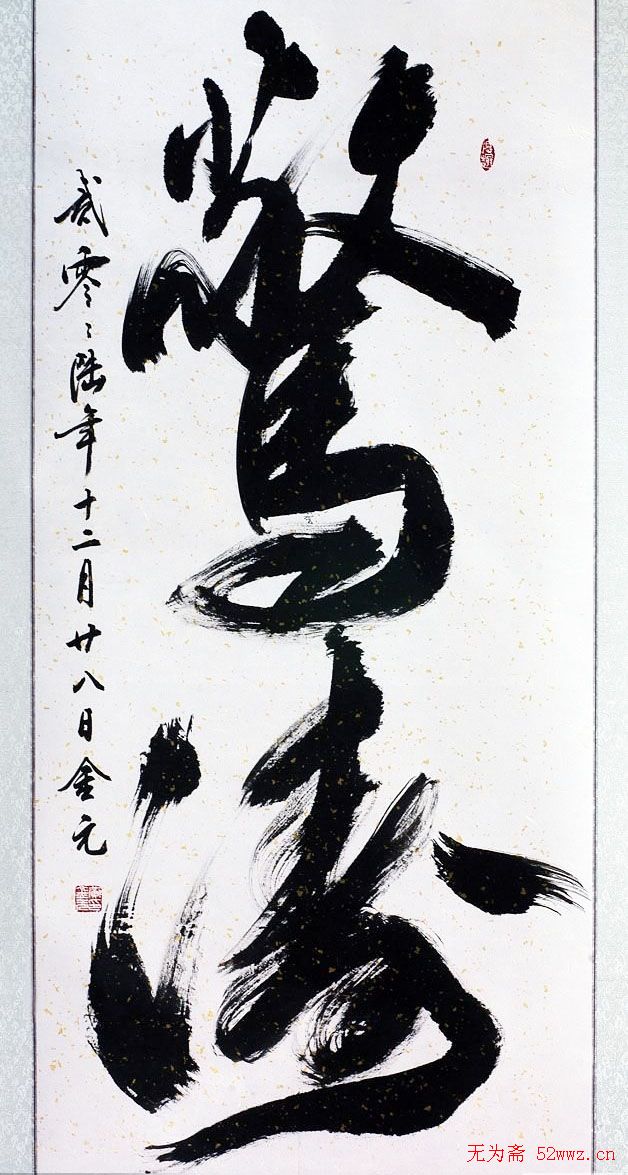 驚濤
貳零〻陸年十二月廿八日金元
无为斋 52wwz.cn